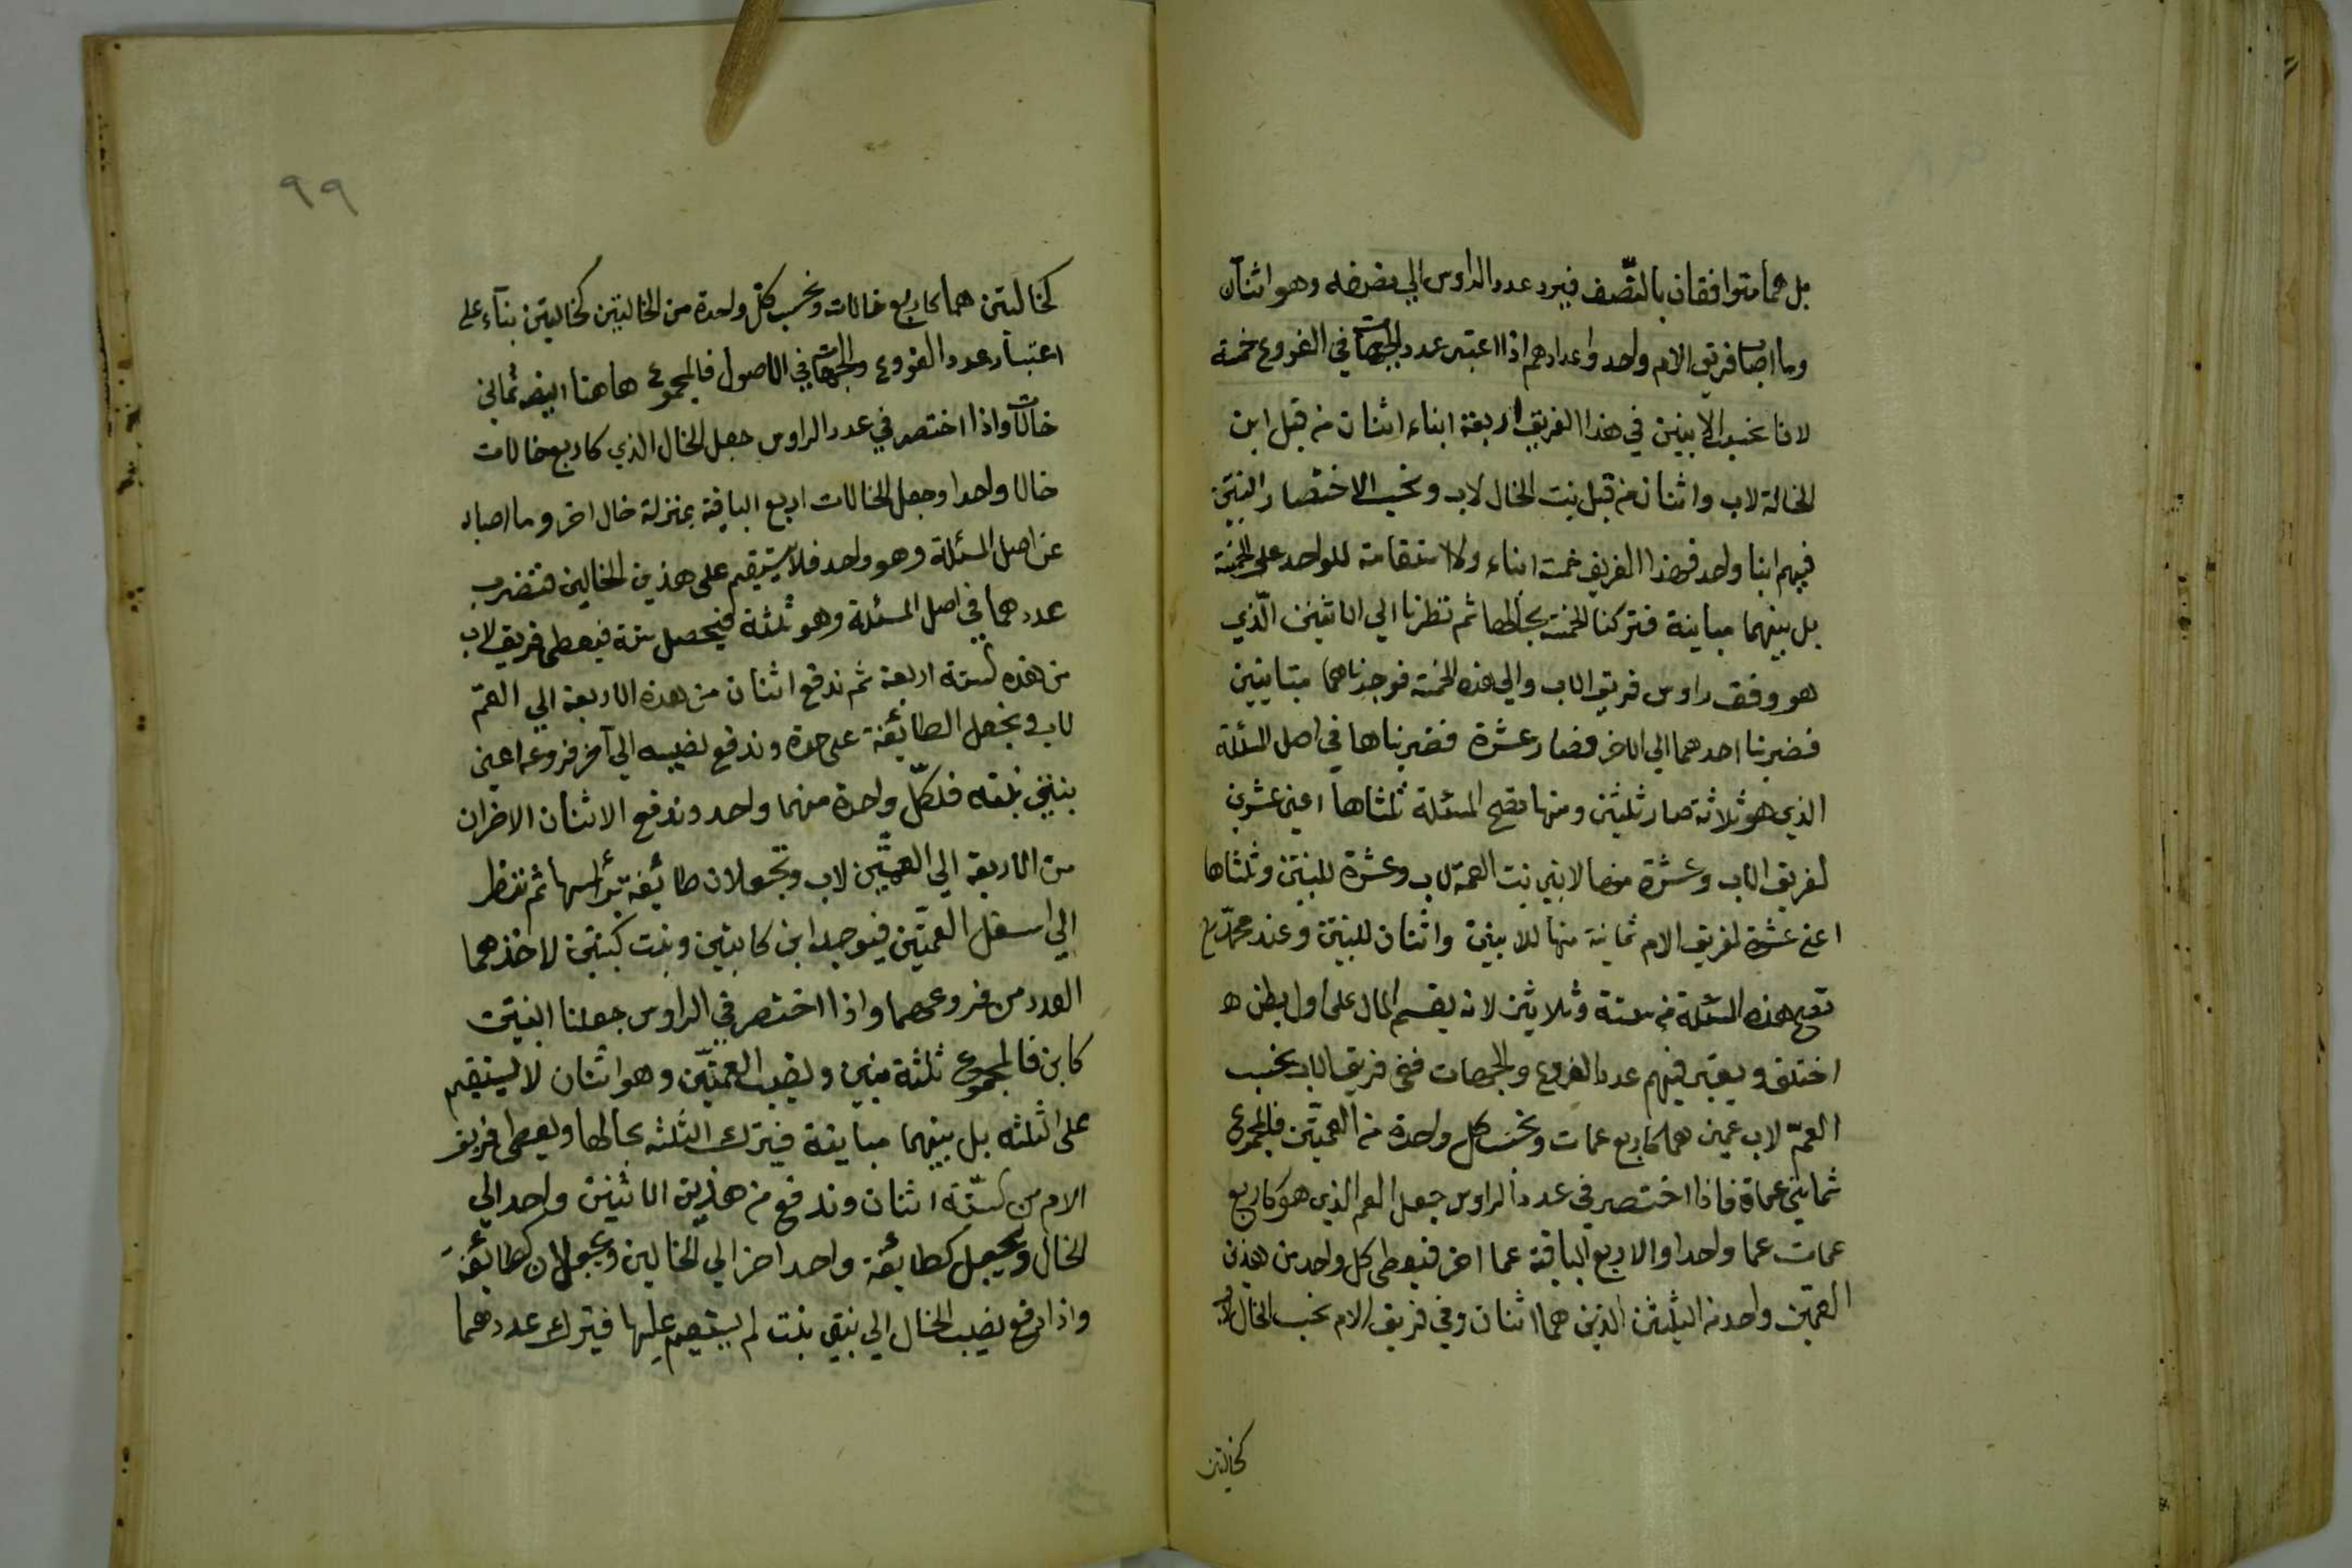 بل هما متوافقان بالنّصف فيرد عدد الراوس الي نصفه وهو اثنان
وما اصاب فريق الام واحد واعدادهم اذا اعتبر عدد الجهات في الفروع خمسة
لانا نحسب الابنين في هذا الفريق اربعة ابناء اثنان من قبل ابن
الخالة لاب واثنان من قبل بنت الخال لاب ونحسب الاختصار البنتين
فيهم ابنا واحد فهذا الفريق خمسة ابناء ولا استقامة للواحد علي الخمسة
بل بينهما مباينة فتركنا الخمسة بحالها ثم نظرنا الي الاثنين الّذي
هو وفق راوس فريق الاب والي هذه الخمسة فوجدناهما متباينين
فضربنا احدهما الي الاخر فصار عشرة فضربناها في اصل المسئلة
الذي هو ثلاثة صار ثلثين ومنها تصح المسئلة ثلثاها اعني عشرين
لفريق الاب وعشرة منها لابني بنت العمة لاب وعشرة للبنتين وثلثاها
اعني عشرة لفريق الام ثمانية منها للابنين واثنان للبنتين وعند محمّد
تصح هذه المسئلة من ستة وثلاثين لانه يقسم المال علي اول بطن
اختلف ويعتبر فيهم عدد الفروع والجهات ففي فريق الاب يحسب
العمّ لاب عمين هما كاربع عمات ونحسب كل واحدة من العمّتين فالمجموع
ثماني عماة فاذا اختصر في عدد الراوس جعل العم الذي هو كاربع
عمات عما واحدا والاربع الباقية عما اخر فيعطي كل واحد من هذين
العمّين واحد من الثلثين الذين هما اثنان وفي فريق الام نحسب الخال لاب
كخالتين
٩٩
كخالتين هما كاربع خالات ونحسب كلّ واحدة من الخالتين كخالتين بنآء علي
اعتبار عدد الفروع والجهات في الاصول فالمجموع هاهنا ايضا ثماني
خالات واذا اختصر في عدد الراوس جعل الخال الذي كاربع خالات
خالا واحدا وجعل الخالات اربع الباقية بمنزلة خال اخر وما اصاب
عن اصل المسئلة وهو واحد فلا يستقيم علي هذين الخالين فنضرب
عددهما في اصل المسئلة وهو ثلثة فيحصل ستة فيعطي فريق لاب
من هذه الستة اربعة ثم ندفع اثنان من هذه الاربعة الي العمّ
لاب ونجعل الطائفة علي حدة وندفع نصيبه الي آخر فروعه اعني
بنتي بنته فلكلّ واحدة منهما واحد وندفع الاثنان الاخران
من الاربعة الي العمّتين لاب وتجعلان طائفة برأسها ثم ننظر
الي اسفل العمّتين فيوجد ابن كابنين وبنت كبنتين لاخذهما
العدد من فروعهما واذا اختصر في الراوس جعلنا البنتين
كابن فالمجموع ثلثة بنين ونصيب العمّتين وهو اثنان لا يستقيم
علي الثلثه بل بينهما مباينة فيترك الثلثه بحالها ويعطي فريق
الام من الستّة اثنان وندفع من هذين الاثنين واحد الي
الخال ويجعل كطائفة واحد اخر الي الخالين ويجعلان كطائفة
واذا دفع نصيب الخال الي بنتي بنت لم يستقم عليها فيترك عددهما